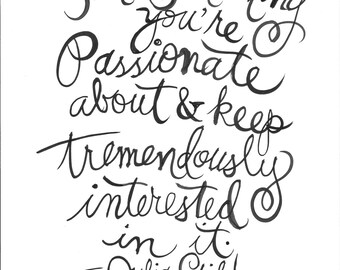 you're
Passionate
about & keep
tremendously
interested
in it.